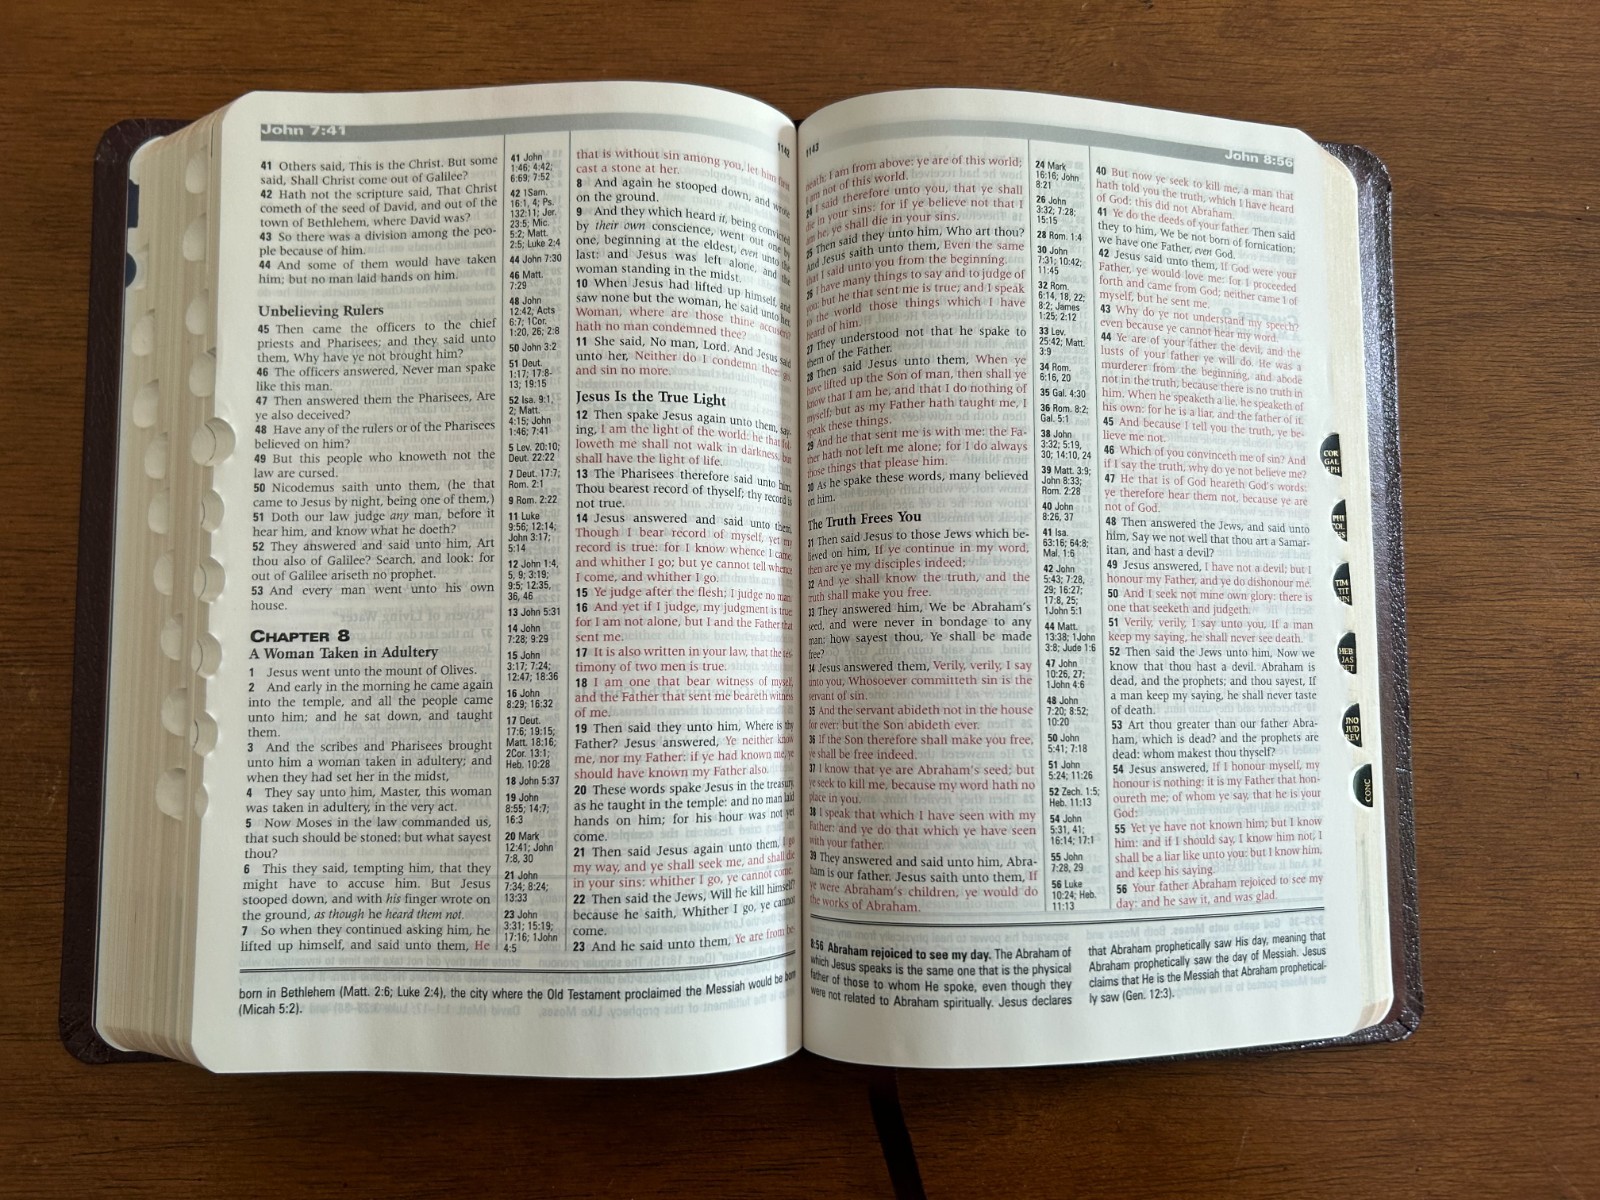 John 7:41
41 Others said, This is the Christ. But some
said, Shall Christ come out of Galilee?
42 Hath not the scripture said, That Christ
cometh of the seed of David, and out of the
town of Bethlehem, where David was?
43 So there was a division among the peo-
ple because of him.
44 And some of them would have taken
him; but no man laid hands on him.
Unbelieving Rulers
45 Then came the officers to the chief
priests and Pharisees; and they said unto
them, Why have ye not brought him?
46 The officers answered, Never man spake
like this man.
47 Then answered them the Pharisees, Are
ye also deceived?
48 Have any of the rulers or of the Pharisees
believed on him?
49 But this people who knoweth not the
law are cursed.
50 Nicodemus saith unto them, (he that
came to Jesus by night, being one of them,)
51 Doth our law judge any man, before it
hear him, and know what he doeth?
52 They answered and said unto him, Art
thou also of Galilee? Search, and look: for
out of Galilee ariseth no prophet.
53 And every man went unto his own
house.
CHAPTER 8
A Woman Taken in Adultery
1 Jesus went unto the mount of Olives.
2 And early in the morning he came again
into the temple, and all the people came
unto him; and he sat down, and taught
them.
3 And the scribes and Pharisees brought
unto him a woman taken in adultery; and
when they had set her in the midst,
4 They say unto him, Master, this woman
was taken in adultery, in the very act.
5 Now Moses in the law commanded us,
that such should be stoned: but what sayest
thou?
6 This they said, tempting him, that they
might have to accuse him. But Jesus
stooped down, and with his finger wrote on
the ground, as though he heard them not.
7 So when they continued asking him, he
lifted up himself, and said unto them, He
41 John
1:46; 4:42;
6:69; 7:52
42 1Sam.
16:1, 4; Ps.
132:11; Jer.
23:5; Mic.
5:2; Matt.
2:5; Luke 2:4
44 John 7:30
46 Matt.
7:29
48 John
12:42; Acts
6:7; 1Cor.
1:20, 26; 2:8
50 John 3:2
51 Deut.
1:17; 17:8-
13; 19:15
52 Isa. 9:1,
2; Matt.
4:15; John
1:46; 7:41
5 Lev. 20:10;
Deut. 22:22
7 Deut. 17:7;
Rom. 2:1
9 Rom. 2:22
11 Luke
9:56; 12:14;
John 3:17;
5:14
12 John 1:4,
5, 9; 3:19;
9:5; 12:35,
36, 46
13 John 5:31
14 John
7:28; 9:29
15 John
3:17; 7:24;
12:47; 18:36
16 John
8:29; 16:32
17 Deut.
17:6; 19:15;
Matt. 18:16;
2Cor. 13:1;
Heb. 10:28
18 John 5:37
19 John
8:55; 14:7;
16:3
20 Mark
12:41; John
7:8, 30
21 John
7:34; 8:24;
13:33
23 John
3:31; 15:19;
17:16; 1John
4:5
1142
that is without sin among you, let him first
cast a stone at her.
8 And again he stooped down, and wrote
on the ground.
9 And they which heard it, being convicted
by their own conscience, went out one by
one, beginning at the eldest, even unto the
last: and Jesus was left alone, and the
woman standing in the midst.
10 When Jesus had lifted up himself, and
saw none but the woman, he said unto her,
Woman, where are those thine accusers?
hath no man condemned thee?
11 She said, No man, Lord. And Jesus said
unto her, Neither do I condemn thee: go,
and sin no more.
Jesus Is the True Light
12 Then spake Jesus again unto them, say-
ing, I am the light of the world: he that fol-
loweth me shall not walk in darkness, but
shall have the light of life.
13 The Pharisees therefore said unto him,
Thou bearest record of thyself; thy record is
not true.
14 Jesus answered and said unto them,
Though I bear record of myself, yet my
record is true: for I know whence I came,
and whither I go; but ye cannot tell whence
I come, and whither I go.
15 Ye judge after the flesh; I judge no man.
16 And yet if I judge, my judgment is true:
for I am not alone, but I and the Father that
sent me.
17 It is also written in your law, that the tes-
timony of two men is true.
18 I am one that bear witness of myself,
and the Father that sent me beareth witness
of me.
19 Then said they unto him, Where is thy
Father? Jesus answered, Ye neither know
me, nor my Father: if ye had known me, ye
should have known my Father also.
20 These words spake Jesus in the treasury,
as he taught in the temple: and no man laid
hands on him; for his hour was not yet
come.
21 Then said Jesus again unto them, I go
my way, and ye shall seek me, and shall die
in your sins: whither I go, ye cannot come.
22 Then said the Jews, Will he kill himself?
because he saith, Whither I go, ye cannot
come.
23 And he said unto them, Ye are from be-
born in Bethlehem (Matt. 2:6; Luke 2:4), the city where the Old Testament proclaimed the Messiah would be born
(Micah 5:2).
1143
John 8:56
neath; I am from above: ye are of this world;
I am not of this world.
24 I said therefore unto you, that ye shall
die in your sins: for if ye believe not that I
am he, ye shall die in your sins.
25 Then said they unto him, Who art thou?
And Jesus saith unto them, Even the same
that I said unto you from the beginning.
26 I have many things to say and to judge of
you: but he that sent me is true; and I speak
to the world those things which I have
heard of him.
27 They understood not that he spake to
them of the Father.
28 Then said Jesus unto them, When ye
have lifted up the Son of man, then shall ye
know that I am he, and that I do nothing of
myself; but as my Father hath taught me, I
speak these things.
29 And he that sent me is with me: the Fa-
ther hath not left me alone; for I do always
those things that please him.
30 As he spake these words, many believed
on him.
The Truth Frees You
31 Then said Jesus to those Jews which be-
lieved on him, If ye continue in my word,
then are ye my disciples indeed;
32 And ye shall know the truth, and the
truth shall make you free.
33 They answered him, We be Abraham's
seed, and were never in bondage to any
man: how sayest thou, Ye shall be made
free?
34 Jesus answered them, Verily, verily, I say
unto you, Whosoever committeth sin is the
servant of sin.
35 And the servant abideth not in the house
for ever: but the Son abideth ever.
36 If the Son therefore shall make you free,
ye shall be free indeed.
37 I know that ye are Abraham's seed; but
ye seek to kill me, because my word hath no
place in you.
38 I speak that which I have seen with my
Father: and ye do that which ye have seen
with your father.
39 They answered and said unto him, Abra-
ham is our father. Jesus saith unto them, If
ye were Abraham's children, ye would do
the works of Abraham.
24 Mark
16:16; John
8:21
26 John
3:32; 7:28;
15:15
28 Rom. 1:4
30 John
7:31; 10:42;
11:45
32 Rom.
6:14, 18, 22;
8:2; James
1:25; 2:12
33 Lev.
25:42; Matt.
3:9
34 Rom.
6:16, 20
35 Gal. 4:30
36 Rom. 8:2;
Gal. 5:1
38 John
3:32; 5:19,
30; 14:10, 24
39 Matt. 3:9;
John 8:33;
Rom. 2:28
40 John
8:26, 37
41 Isa.
63:16; 64:8;
Mal. 1:6
42 John
5:43; 7:28,
29; 16:27;
17:8, 25;
1John 5:1
44 Matt.
13:38; 1John
3:8; Jude 1:6
47 John
10:26, 27;
1John 4:6
48 John
7:20; 8:52;
10:20
50 John
5:41; 7:18
51 John
5:24; 11:26
52 Zech. 1:5;
Heb. 11:13
54 John
5:31, 41;
16:14; 17:1
55 John
7:28, 29
56 Luke
10:24; Heb.
11:13
40 But now ye seek to kill me, a man that
hath told you the truth, which I have heard
of God: this did not Abraham.
41 Ye do the deeds of your father. Then said
they to him, We be not born of fornication;
we have one Father, even God.
42 Jesus said unto them, If God were your
Father, ye would love me: for I proceeded
forth and came from God; neither came I of
myself, but he sent me.
43 Why do ye not understand my speech?
even because ye cannot hear my word.
44 Ye are of your father the devil, and the
lusts of your father ye will do. He was a
murderer from the beginning, and abode
not in the truth, because there is no truth in
him. When he speaketh a lie, he speaketh of
his own: for he is a liar, and the father of it.
45 And because I tell you the truth, ye be-
lieve me not.
46 Which of you convinceth me of sin? And
if I say the truth, why do ye not believe me?
47 He that is of God heareth God's words:
ye therefore hear them not, because ye are
not of God.
48 Then answered the Jews, and said unto
him, Say we not well that thou art a Samar-
itan, and hast a devil?
49 Jesus answered, I have not a devil; but I
honour my Father, and ye do dishonour me.
50 And I seek not mine own glory: there is
one that seeketh and judgeth.
51 Verily, verily, I say unto you, If a man
keep my saying, he shall never see death.
52 Then said the Jews unto him, Now we
know that thou hast a devil. Abraham is
dead, and the prophets; and thou sayest, If
a man keep my saying, he shall never taste
of death.
53 Art thou greater than our father Abra-
ham, which is dead? and the prophets are
dead: whom makest thou thyself?
54 Jesus answered, If I honour myself, my
honour is nothing: it is my Father that hon-
oureth me; of whom ye say, that he is your
God:
55 Yet ye have not known him; but I know
him: and if I should say, I know him not, I
shall be a liar like unto you: but I know him,
and keep his saying.
56 Your father Abraham rejoiced to see my
day: and he saw it, and was glad.
8:56 Abraham rejoiced to see my day. The Abraham of
which Jesus speaks is the same one that is the physical
father of those to whom He spoke, even though they
were not related to Abraham spiritually. Jesus declares
that Abraham prophetically saw His day, meaning that
Abraham prophetically saw the day of Messiah. Jesus
claims that He is the Messiah that Abraham prophetical-
ly saw (Gen. 12:3).
COR
GAL
EPH
TIM
TIT
HEB
JAS
JNO
JUD
REV
CONC